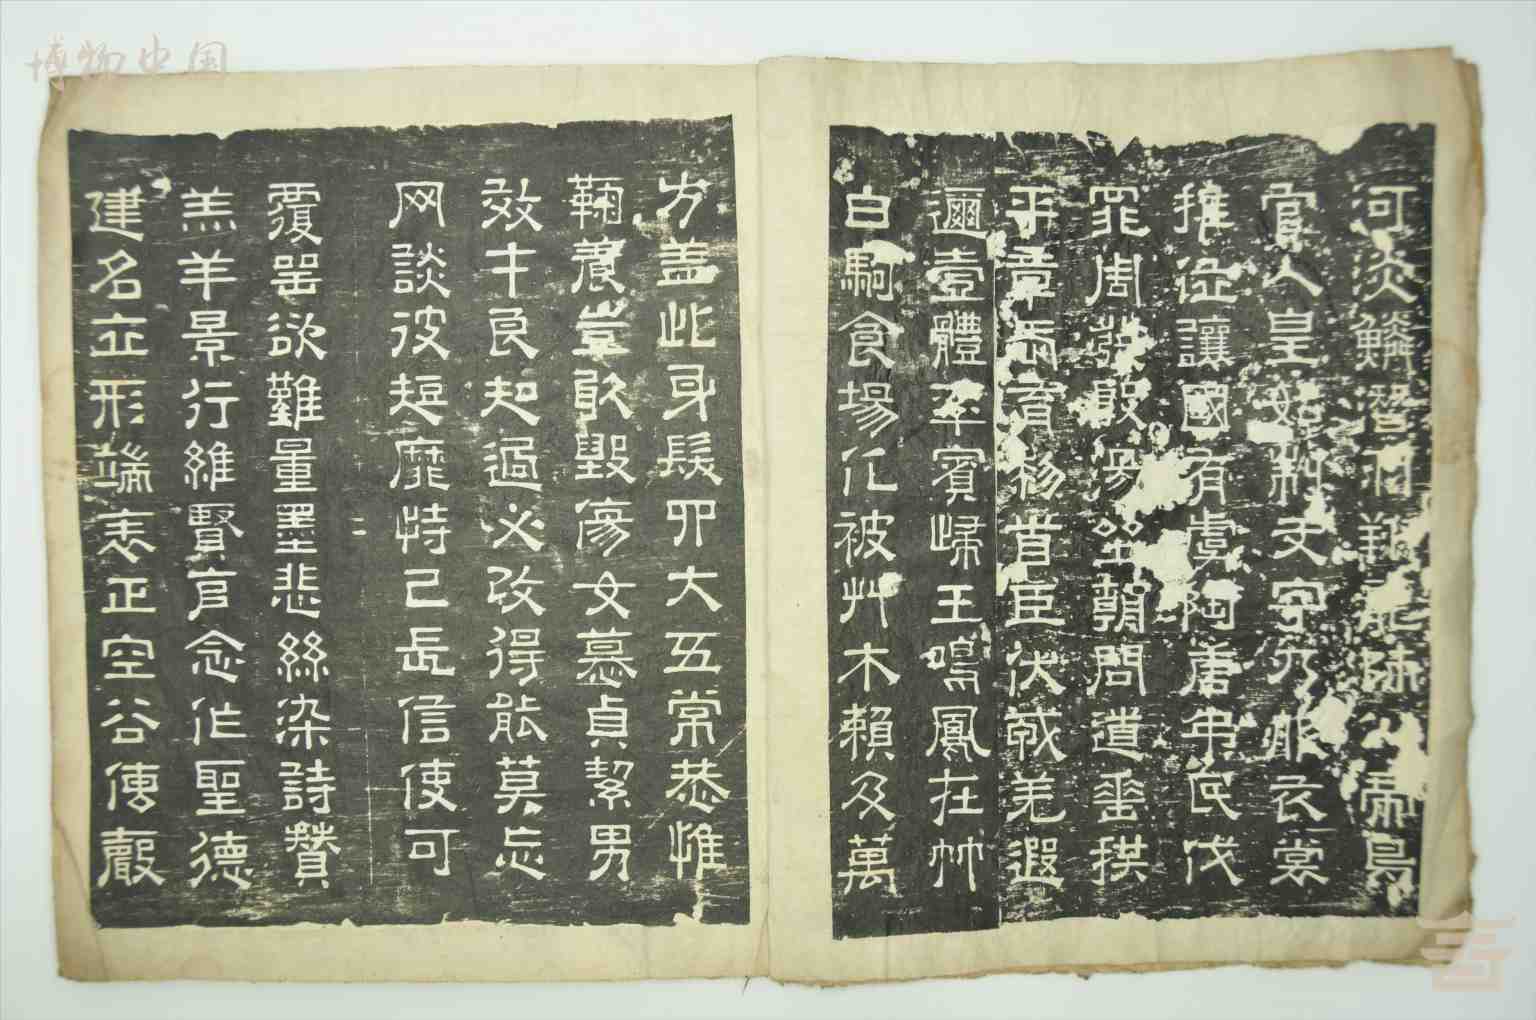 博物中国
河淡鱗潛羽翔龍師火帝鳥
官人皇始制文字乃服衣裳
推位讓國有虞陶唐弔民伐
罪周發殷湯坐朝問道垂拱
平章愛育黎首臣伏戎羌遐
邇壹體率賓歸王鳴鳳在竹
白駒食場化被艸木賴及萬
方盖此身髮四大五常恭惟
鞠養豈敢毀傷女慕貞絜男
效才良知過必改得能莫忘
网談彼短靡恃己長信使可
二
覆器欲難量墨悲絲染詩贊
羔羊景行維賢克念作聖德
建名立形端表正空谷傳聲